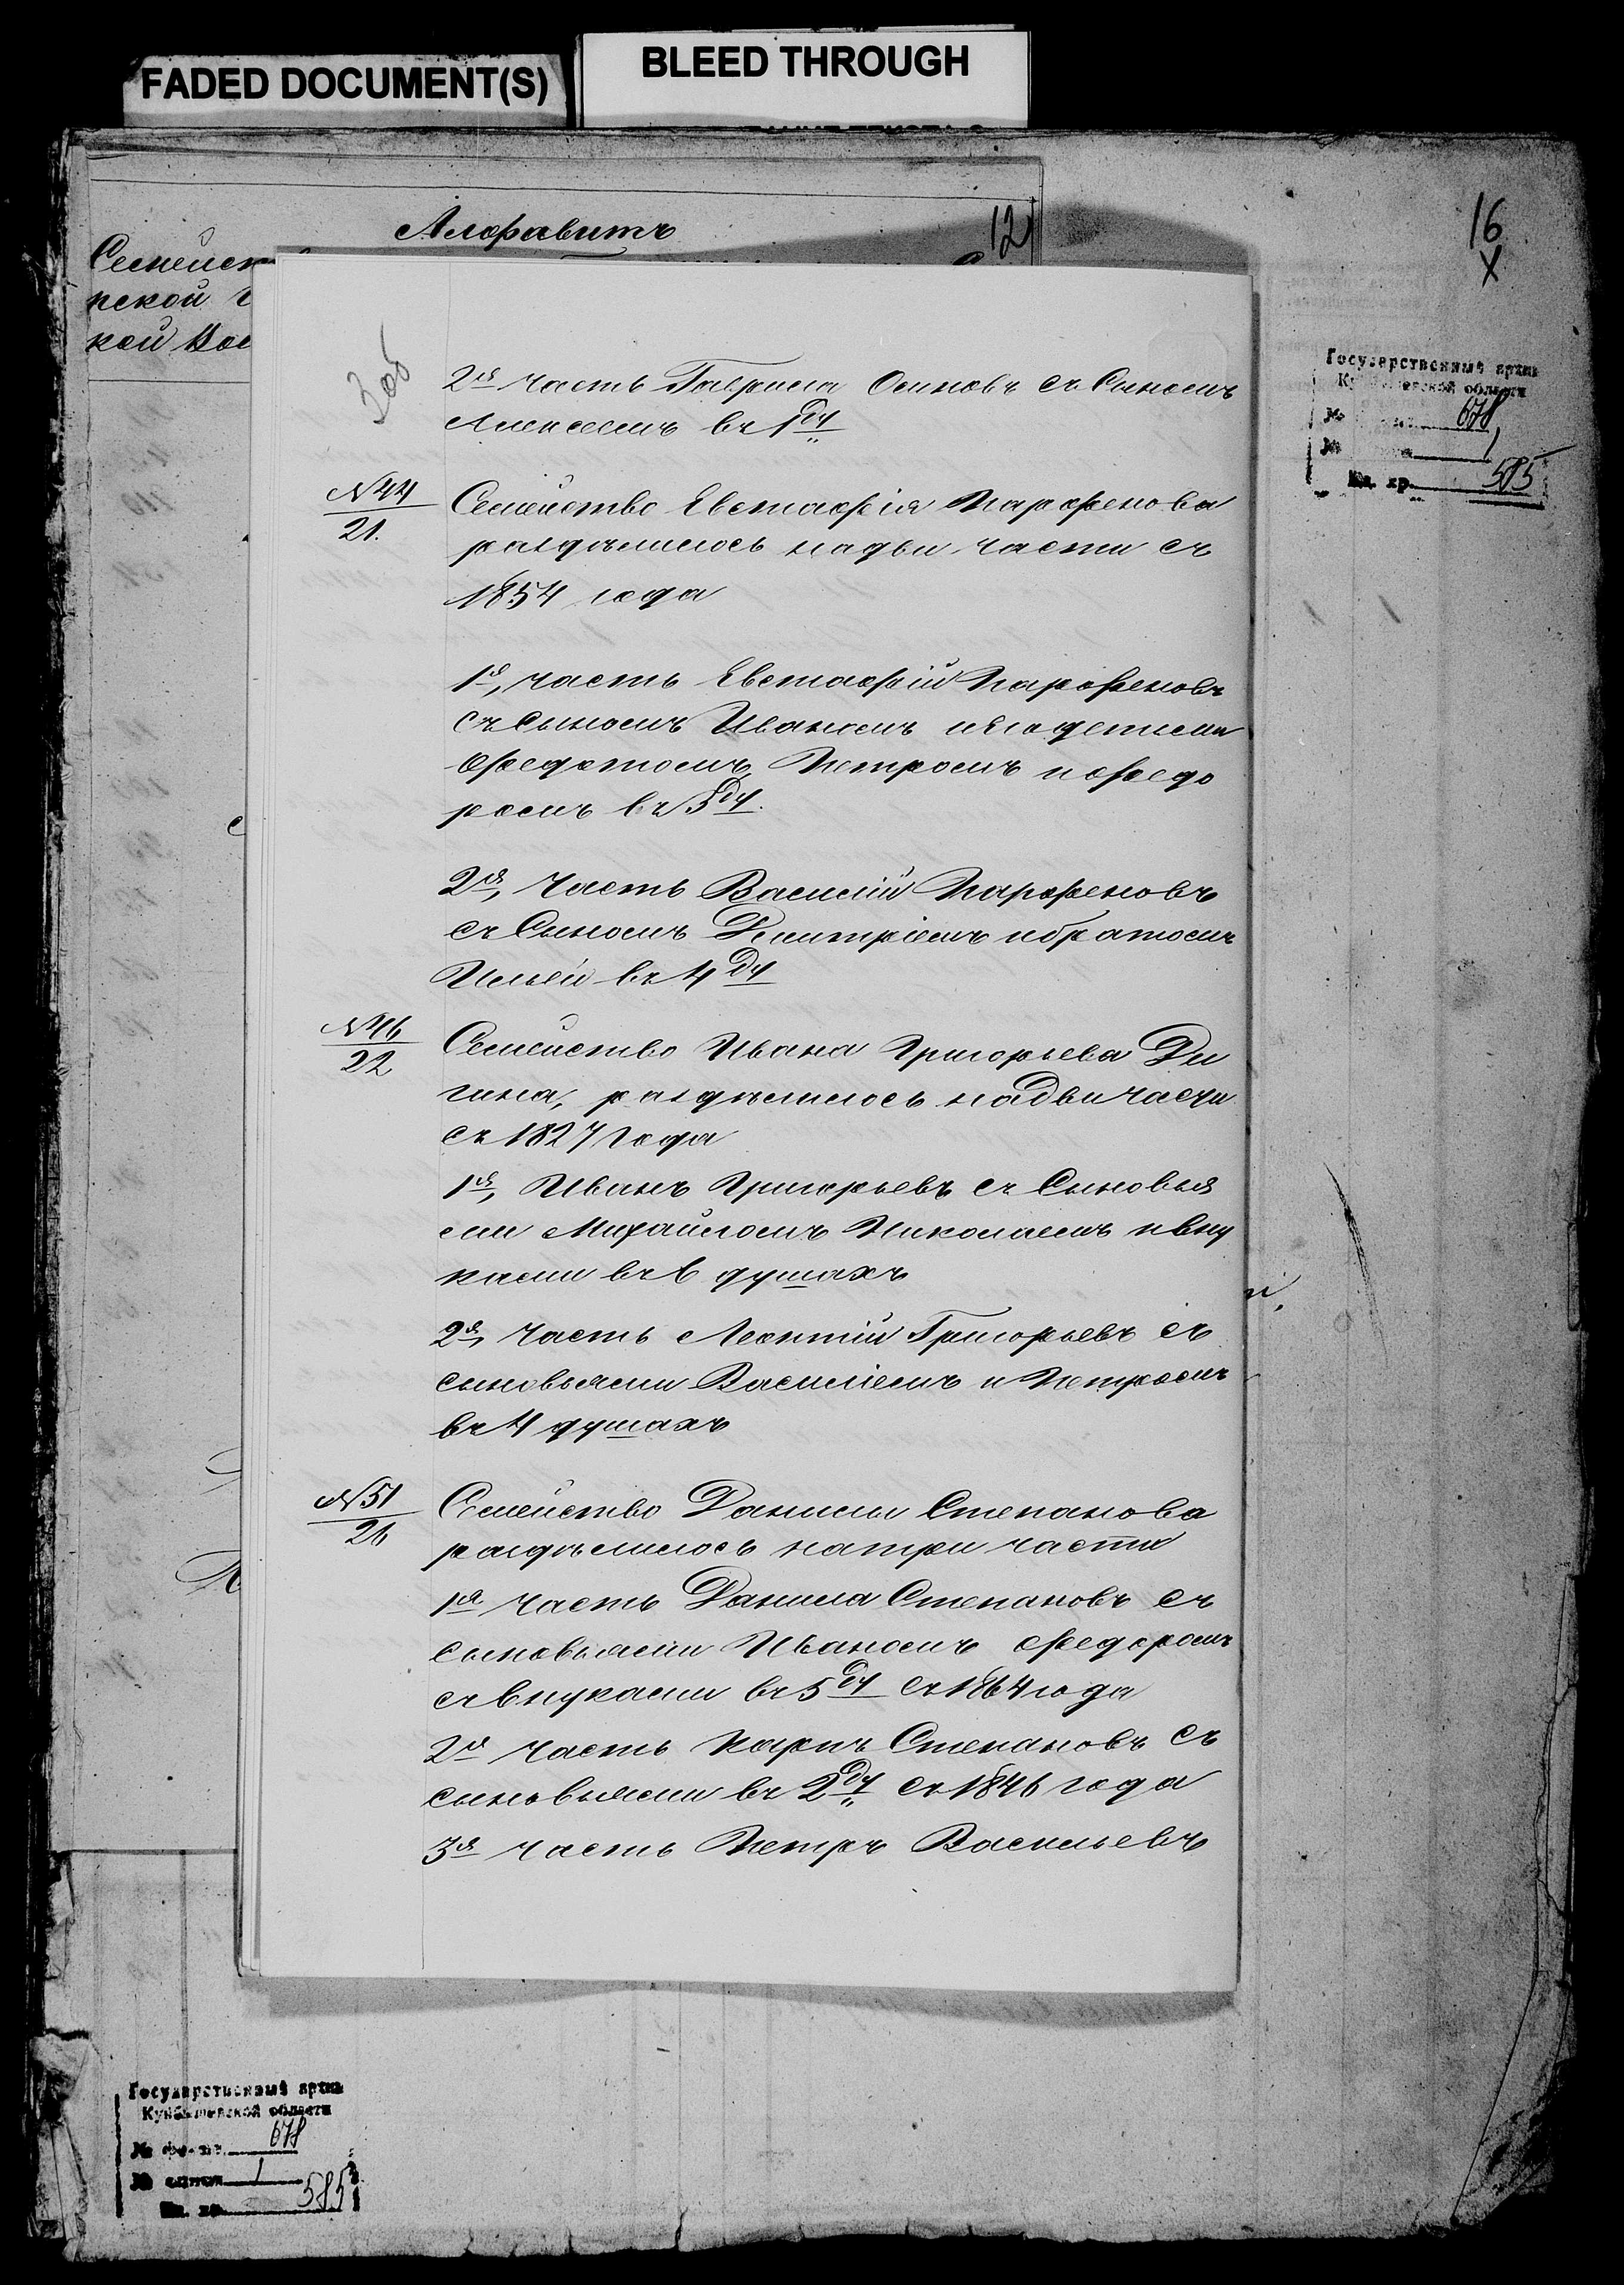 FADED DOCUMENT(S)
BLEED THROUGH
Алфавитъ
12
16
X
Семейст
пской г
кой Вол
Государственный архив
Куйбышевской области
№ 678
№ 1
Ед. хр. 585
Зоб
2я часть Гаврила Осиповъ съ Сыномъ
Алексеемъ въ 1 ду
№ 44
21.
Семейство Евстафія Парфенова
раздѣлилось надви части съ
1854 года
1я, часть Евстафій Парфеновъ
съ Сыномъ Иваномъ иЯго детьми
Ѳедотомъ, Петромъ и Ѳедо
ромъ въ 5 ду.
2я, часть Василій Парфеновъ
съ Сыномъ Дмитріемъ ибратомъ
Ильей въ 4 ду
№ 46
22
Семейство Ивана Григорьева Ди
гина, раздѣлилось надви части
съ 1827 года
1я, Иванъ Григорьевъ съ Сыновья
ми Михайломъ Николаемъ ивну
ками въ 6 душахъ
2я, часть Леонтій Григорьевъ съ
сыновьями Василіемъ и Петромъ
въ 4 душахъ
№ 51
26
Семейство Данилы Степанова
раздѣлилось натри части
1я часть Данила Степановъ съ
сыновьями Иваномъ Федоромъ
съ внуками въ 5 ду съ 1864 года
2я часть Карпъ Степановъ съ
сыновьями въ 2 ду съ 1846 года
3я часть Петръ Васильевъ
Государственный архив
Куйбышевской области
№ фонда 678
№ описи 1
Ед. хр. 585